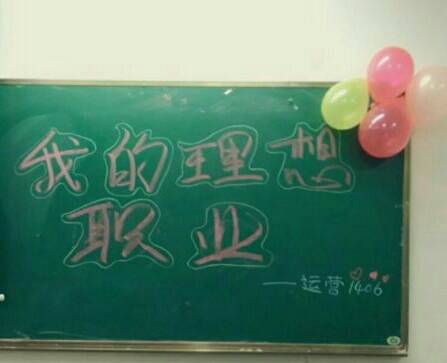 我的理想
职业
——运营1406